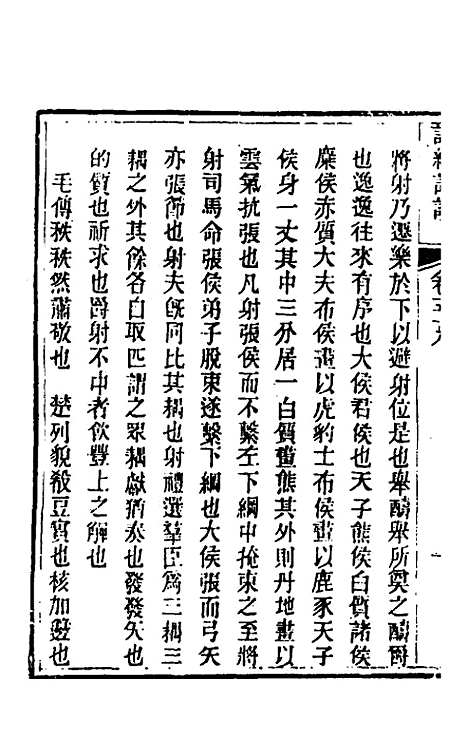 詩經詳說
卷五十八
將射乃遷樂於下以避射位是也舉醻舉所奠之醻爵
也逸逸往來有序也大侯君侯也天子熊侯白質諸侯
麋侯赤質大夫布侯畫以虎豹士布侯畫以鹿豕天子
侯身一丈其中三分居一白質畫熊其外則丹地畫以
雲氣抗張也凡射張侯而不繫左下綱中掩束之至將
射司馬命張侯弟子脫束遂繫下綱也大侯張而弓矢
亦張節也射夫既同比其耦也射禮選羣臣爲三耦三
耦之外其餘各自取匹謂之眾耦獻猶奏也發發矢也
的質也祈求也爵射不中者飲豐上之觶也
毛傳秩秩然肅敬也　楚列貌殽豆實也核加籩也